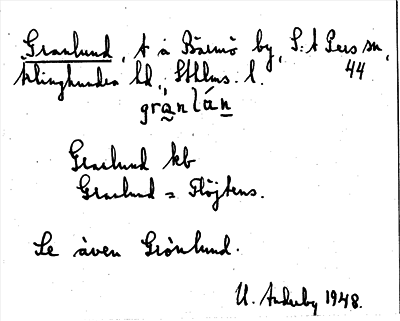 Granlund, t å Barnö by, S:t Pers sn,
44
Åkinghundra hd., Sthlms. l.
grạnlán
Graalund kb
Graalund = Flöjtens.
Se även Grönlund.
U. Anderby 1948.